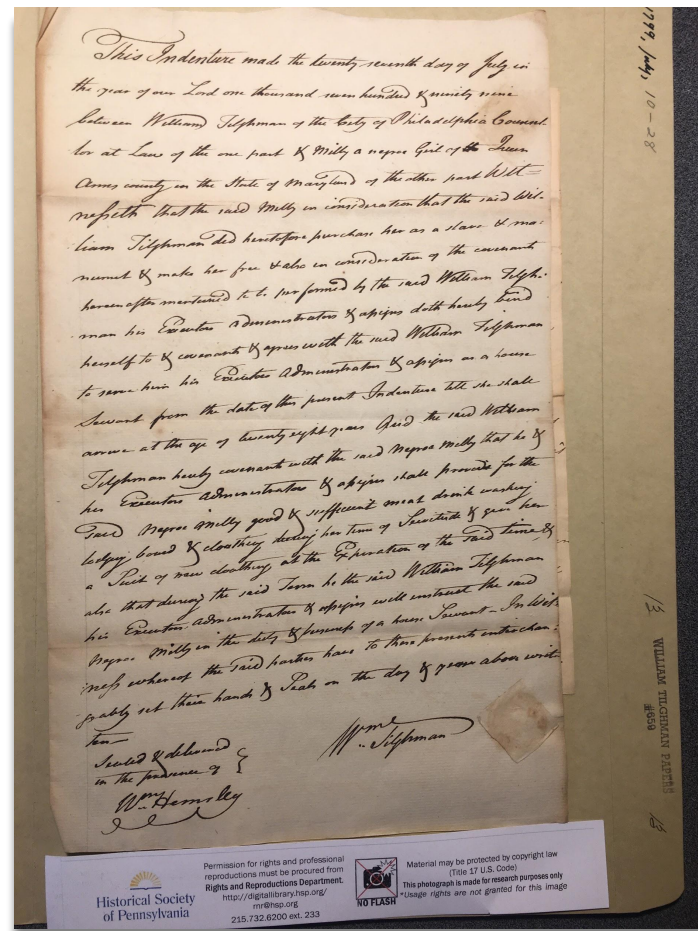 This Indenture made the twenty seventh day of July in
the year of our Lord one thousand seven hundred & ninety nine
between William Tilghman of the City of Philadelphia Counsel-
lor at Law of the one part & Milly a negroe Girl of Queen
Anns county in the State of Maryland of the other part Wit=
nesseth that the said Milly in consideration that the said Wil-
liam Tilghman did heretofore purchase her as a slave & ma-
numit & make her free & also in consideration of the covenants
hereinafter mentioned to be performed by the said William Tilgh-
man his Executors Administrators & assigns doth hereby bind
herself to & covenants & agrees with the said William Tilghman
to serve him his Executors Administrators & assigns as a house
Servant from the date of this present Indenture till she shall
arrive at the age of twenty eight years And the said William
Tilghman hereby covenants with the said Negroe Milly that he &
his Executors Administrators & assigns shall provide for the
said Negroe Milly good & sufficient meat drink washing
lodging & cloathing during her time of Servitude & give her
a Suit of new cloathing at the Expiration of the said time, &
also that during the said Term he the said William Tilghman
his Executors Administrators & assigns will instruct the said
Negroe Milly in the duty & business of a house Servant - In Wit-
ness whereof the said parties have to these presents interchan-
geably set their hands & Seals on the day & year above writ-
ten
Sealed & delivered
in the presence of
Wm Hemsley
Wm. Tilghman
1799, July, 10-28
13
WILLIAM TILGHMAN PAPERS
#659
Historical Society
of Pennsylvania
Permission for rights and professional
reproductions must be procured from
Rights and Reproductions Department.
http://digitallibrary.hsp.org/
rnr@hsp.org
215.732.6200 ext. 233
NO FLASH
Material may be protected by copyright law
(Title 17 U.S. Code)
This photograph is made for research purposes only
*Usage rights are not granted for this image